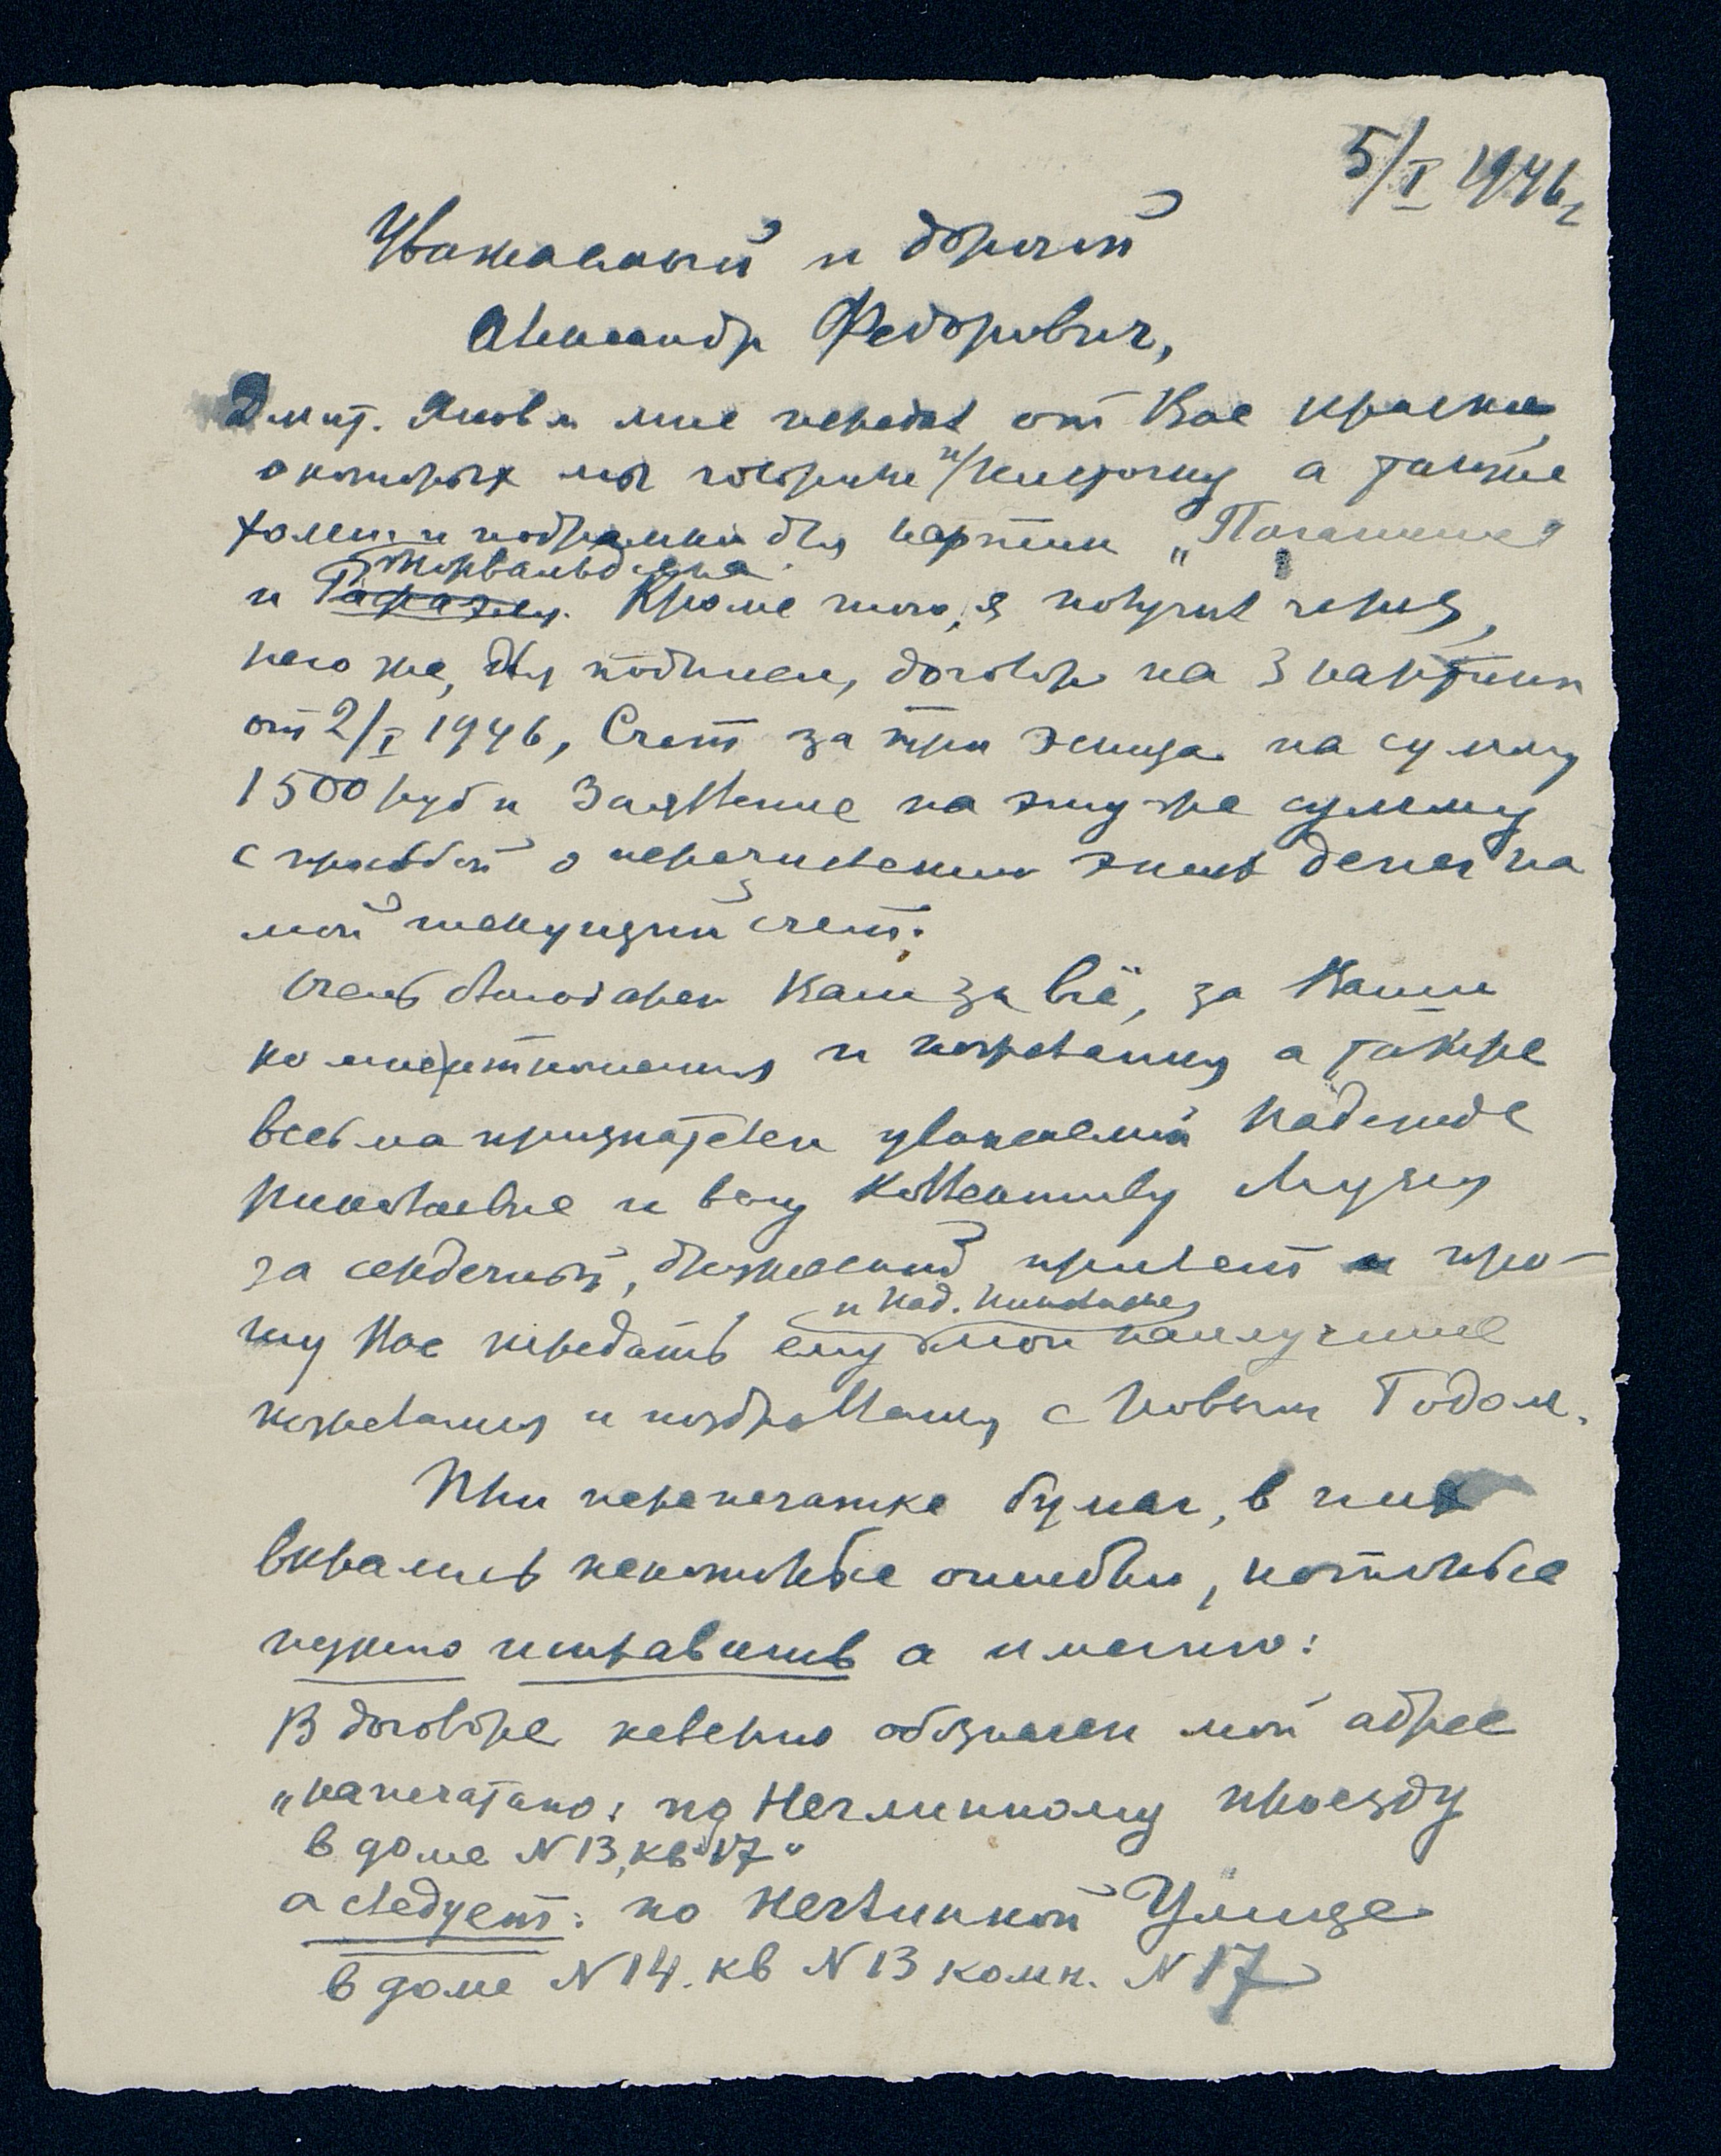 5/I 1946 г
Уважаемый и дорогой
Александр Федорович,
Дмит. Яковл. мне передал от Вас краски,
о которых мы говорили и кисточку а также
холст и подрамки для картин „Поганини"
и Торвальдсена. Кроме того, я получил через
него же, для подписи, договор на 3 картины
от 2/I 1946, Счет за три эскиза на сумму
1500 руб и Заявление на эту же сумму
с просьбой о перечислении этих денег на
мой текущий счет.
Очень благодарен Вам за всё, за Ваши
ко мне отношения и пожелания, а также
весьма признателен уважаемой Надежде
Николаевне и всему Коллективу Музея
за сердечный, дружеский привет и про-
шу Вас передать ему и Над. Николаевне мои наилучшие
пожелания и поздравления с Новым Годом.
При перепечатке бумаг, в них
вкрались некоторые ошибки, которые
нужно исправить а именно:
В договоре неверно обозначен мой адрес
„напечатано: по Неглинному проезду
в доме N 13, кв 17"
а следует: по Неглинной Улице
в доме N 14. кв N 13 комн. N 17